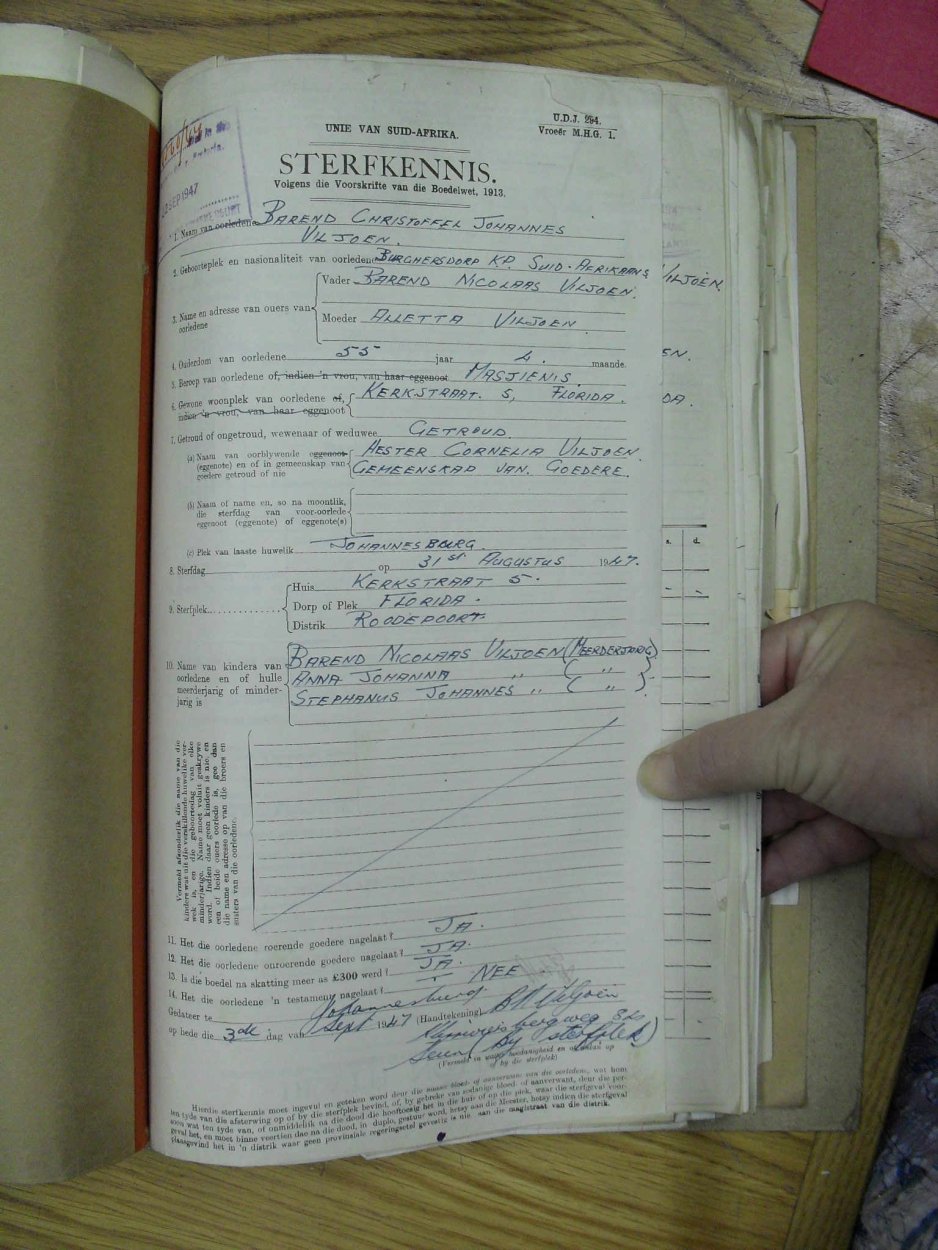 U.D.J. 294.
Vroeër M.H.G. 1.
UNIE VAN SUID-AFRIKA.
STERFKENNIS.
Volgens die Voorskrifte van die Boedelwet, 1913.
SEP 1947
1. Naam van oorledene BAREND CHRISTOFFEL JOHANNES
VILJOEN.
2. Geboorteplek en nasionaliteit van oorledene BURGHERSDORP KP. SUID-AFRIKAANS
VILJOEN.
3. Name en adresse van ouers van oorledene
Vader BAREND NICOLAAS VILJOEN.
Moeder ALLETTA VILJOEN.
EN.
4. Ouderdom van oorledene 55 jaar 4. maande.
5. Beroep van oorledene of, indien 'n vrou, van haar eggenoot MASJIENIS.
6. Gewone woonplek van oorledene of, indien 'n vrou, van haar eggenoot KERKSTRAAT. 5, FLORIDA.
DA.
7. Getroud of ongetroud, wewenaar of weduwee GETROUD.
(a) Naam van oorblywende eggenoot HESTER CORNELIA VILJOEN.
(eggenote) en of in gemeenskap van GEMEENSKAP VAN. GOEDERE.
goedere getroud of nie
(b) Naam of name en, so na moontlik,
die sterfdag van voor-oorlede
eggenoot (eggenote) of eggenote(s)
(c) Plek van laaste huwelik JOHANNESBURG.
s. d.
8. Sterfdag op 31st AUGUSTUS 1947.
9. Sterfplek
Huis KERKSTRAAT 5.
Dorp of Plek FLORIDA.
Distrik ROODEPOORT.
10. Name van kinders van BAREND NICOLAAS VILJOEN (MEERDERJARIG)
oorledene en of hulle ANNA JOHANNA " ( " )
meerderjarig of minder- STEPHANUS JOHANNES " ( " ).
jarig is
Vermeld afsonderlik die name van die
kinders wat uit die verskillende huwelike ver-
wek is, en die geboortedag van elke
minderjarige. Name moet voluit geskrywe
word. Indien daar geen kinders is nie, en
een of beide ouers oorlede is, gee dan
die name en adresse op van die broers en
susters van die oorledene.
11. Het die oorledene roerende goedere nagelaat? JA.
12. Het die oorledene onroerende goedere nagelaat? JA.
13. Is die boedel na skatting meer as £300 werd? JA.
14. Het die oorledene 'n testament nagelaat? NEE
Gedateer te Johannesburg (Handtekening) BN Viljoen
op hede die 3de dag van Sept 1947
Seun (By sterfplek)
(Vermeld in watter hoedanigheid en of aldan op
of by die sterfplek)
Hierdie sterfkennis moet ingevul en geteken word deur die naaste bloed- of aanverwant van die oorledene, wat hom
ten tyde van die afsterwing op of by die sterfplek bevind, of, by gebreke van sodanige bloed- of aanverwant, deur die per-
soon wat ten tyde van, of onmiddelik na die dood die hooftoesig het in die huis of op die plek, waar die sterfgeval voor-
geval het, en moet binne veertien dae na die dood, in duplo, gestuur word, hetsy aan die Meester, hetsy indien die sterfgeval
plaasgevind het in 'n distrik waar geen provinsiale regeringsetel gevestig is nie aan die magistraat van die distrik.